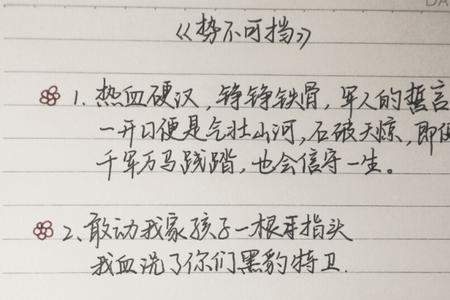 《势不可挡》
1. 热血硬汉，铮铮铁骨，军人的誓言
一开口便是气壮山河，石破天惊，即使
千军万马践踏，也会信守一生。
2、敢动我家孩子一根手指头
我血洗了你们黑豹特卫.
DA